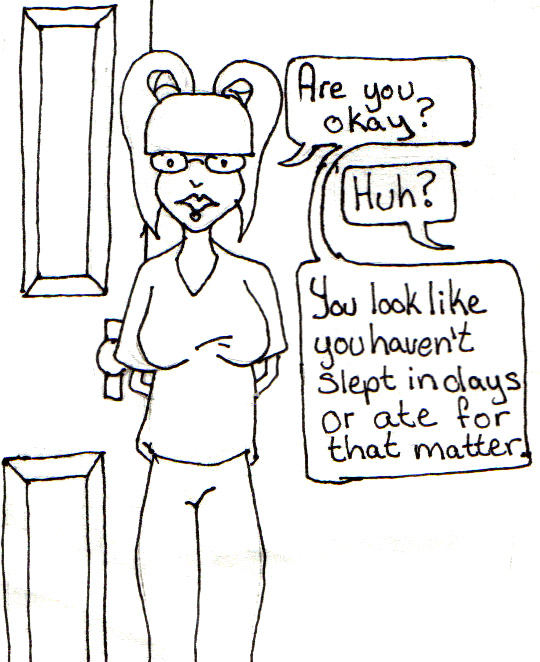 Are you
okay?
Huh?
You look like
you haven't
slept in days
or ate for
that matter.